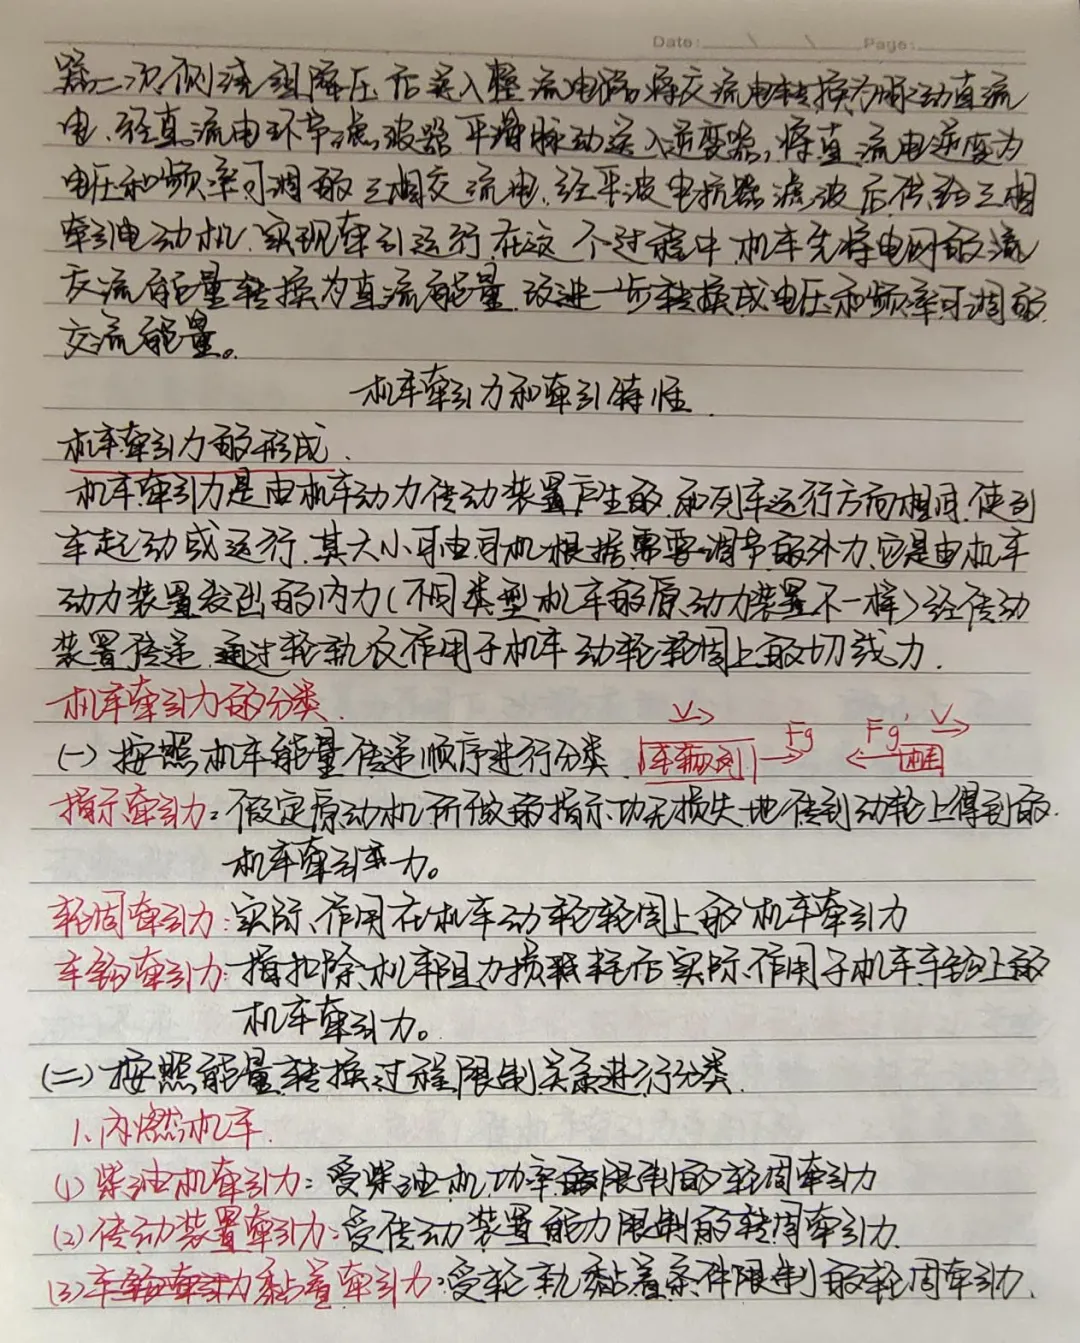 Date: Page:
器二次侧绕组降压后送入整流电路,将交流电转换为脉动直流
电、经直流电环节滤波器平滑脉动送入逆变器,将直流电逆变为
电压和频率可调的三相交流电、经平波电抗器滤波后传给三相
牵引电动机、实现牵引运行、在这个过程中、机车先将电网的流
交流能量转换为直流能量、改进一步转换成电压和频率可调的
交流能量。
机车牵引力和牵引特性.
机车牵引力的形成.
机车牵引力是由机车动力传动装置产生的、和列车运行方向相同、使列
车起动或运行、其大小可由司机根据需要调节的外力、它是由机车
动力装置发出的内力(不同类型机车的原动力装置不一样)经传动
装置传递、通过轮轨反作用于机车动轮轮周上的切线力.
机车牵引力的分类.
(一)按照机车能量传递顺序进行分类. 车辆列 V Fg Fg' V 机车
指示牵引力:假定原动机所做的指示功无损失地传到动轮上得到的
机车牵引力。
轮周牵引力:实际、作用在机车动轮轮周上的机车牵引力
车钩牵引力:指扣除机车阻力损耗后实际、作用于机车车钩上的
机车牵引力。
(二)按照能量转换过程限制关系进行分类.
1、内燃机车.
(1)柴油机牵引力:受柴油机功率限制的轮周牵引力
(2)传动装置牵引力:受传动装置能力限制的轮周牵引力.
(3)黏着牵引力:受轮轨黏着条件限制的轮周牵引力.